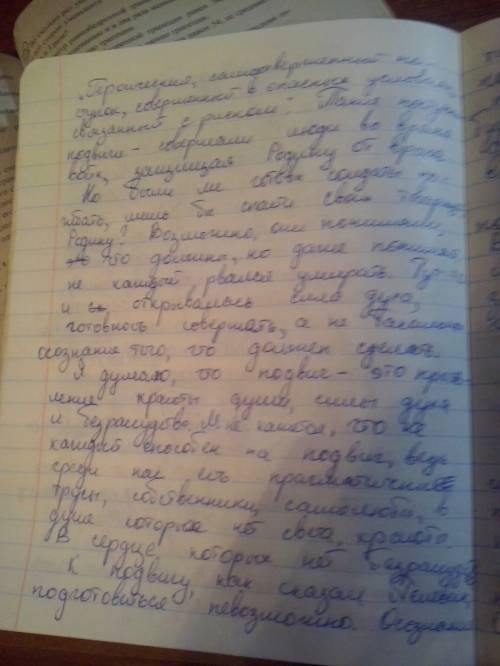 „Героический, самоотверженный по-
ступок, совершенный в опасных условиях,
связанный с риском". Такие поступки
подвиги - совершали люди во время
войн, защищая Родину от врага.
Но были ли готовы солдаты по-
гибать, лишь бы спасти свою
Родину? Возможно, они понимали,
что должны, но даже понимая
не каждый рвался умирать. Тут
и открывалась сила духа,
готовность совершать, а не
осознание того, что должен сделать.
Я думаю, что подвиг - это прояв-
ление красоты души, силы духа
и безрассудства. Мне кажется, что не
каждый способен на подвиг, ведь
среди нас есть прагматичные
трусы, собственники, самолюбы, в
душе которых нет света, красоты.
В сердце которых нет безрассудства
К подвигу, как сказал
подготовиться невозможно. Осознание